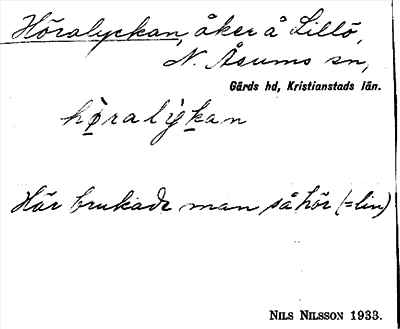 Höralyckan, åker å Lillö,
N. Åsums sn,
Gärds hd, Kristianstads län.
hø̀ralýkan
Här brukade man så hör (=lin)
NILS NILSSON 1933.